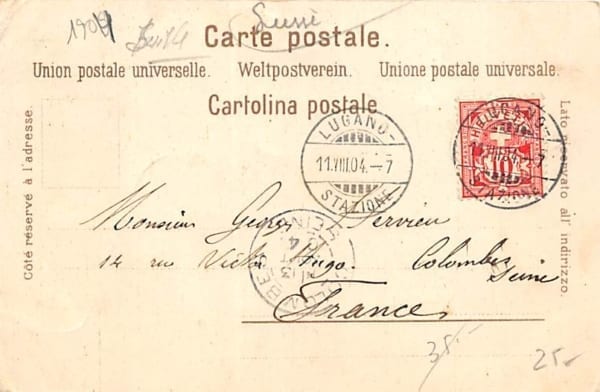 1904
Suisse
Carte postale.
Union postale universelle. Weltpostverein. Unione postale universale.
Cartolina postale.
Côté réservé à l'adresse.
Lato riservato all' indirizzo.
LUGANO-
11.VIII.04.—7
STAZIONE
HELVETIA
10
LUGANO-
11.VIII.04.—7
STAZIONE
COLOMBES
SEINE
13
Monsieur Georges Servieu
12 rue Victor Hugo. Colombes
Seine
France
38-
25-